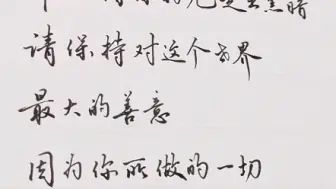 请保持对这个世界
最大的善意
因为你所做的一切